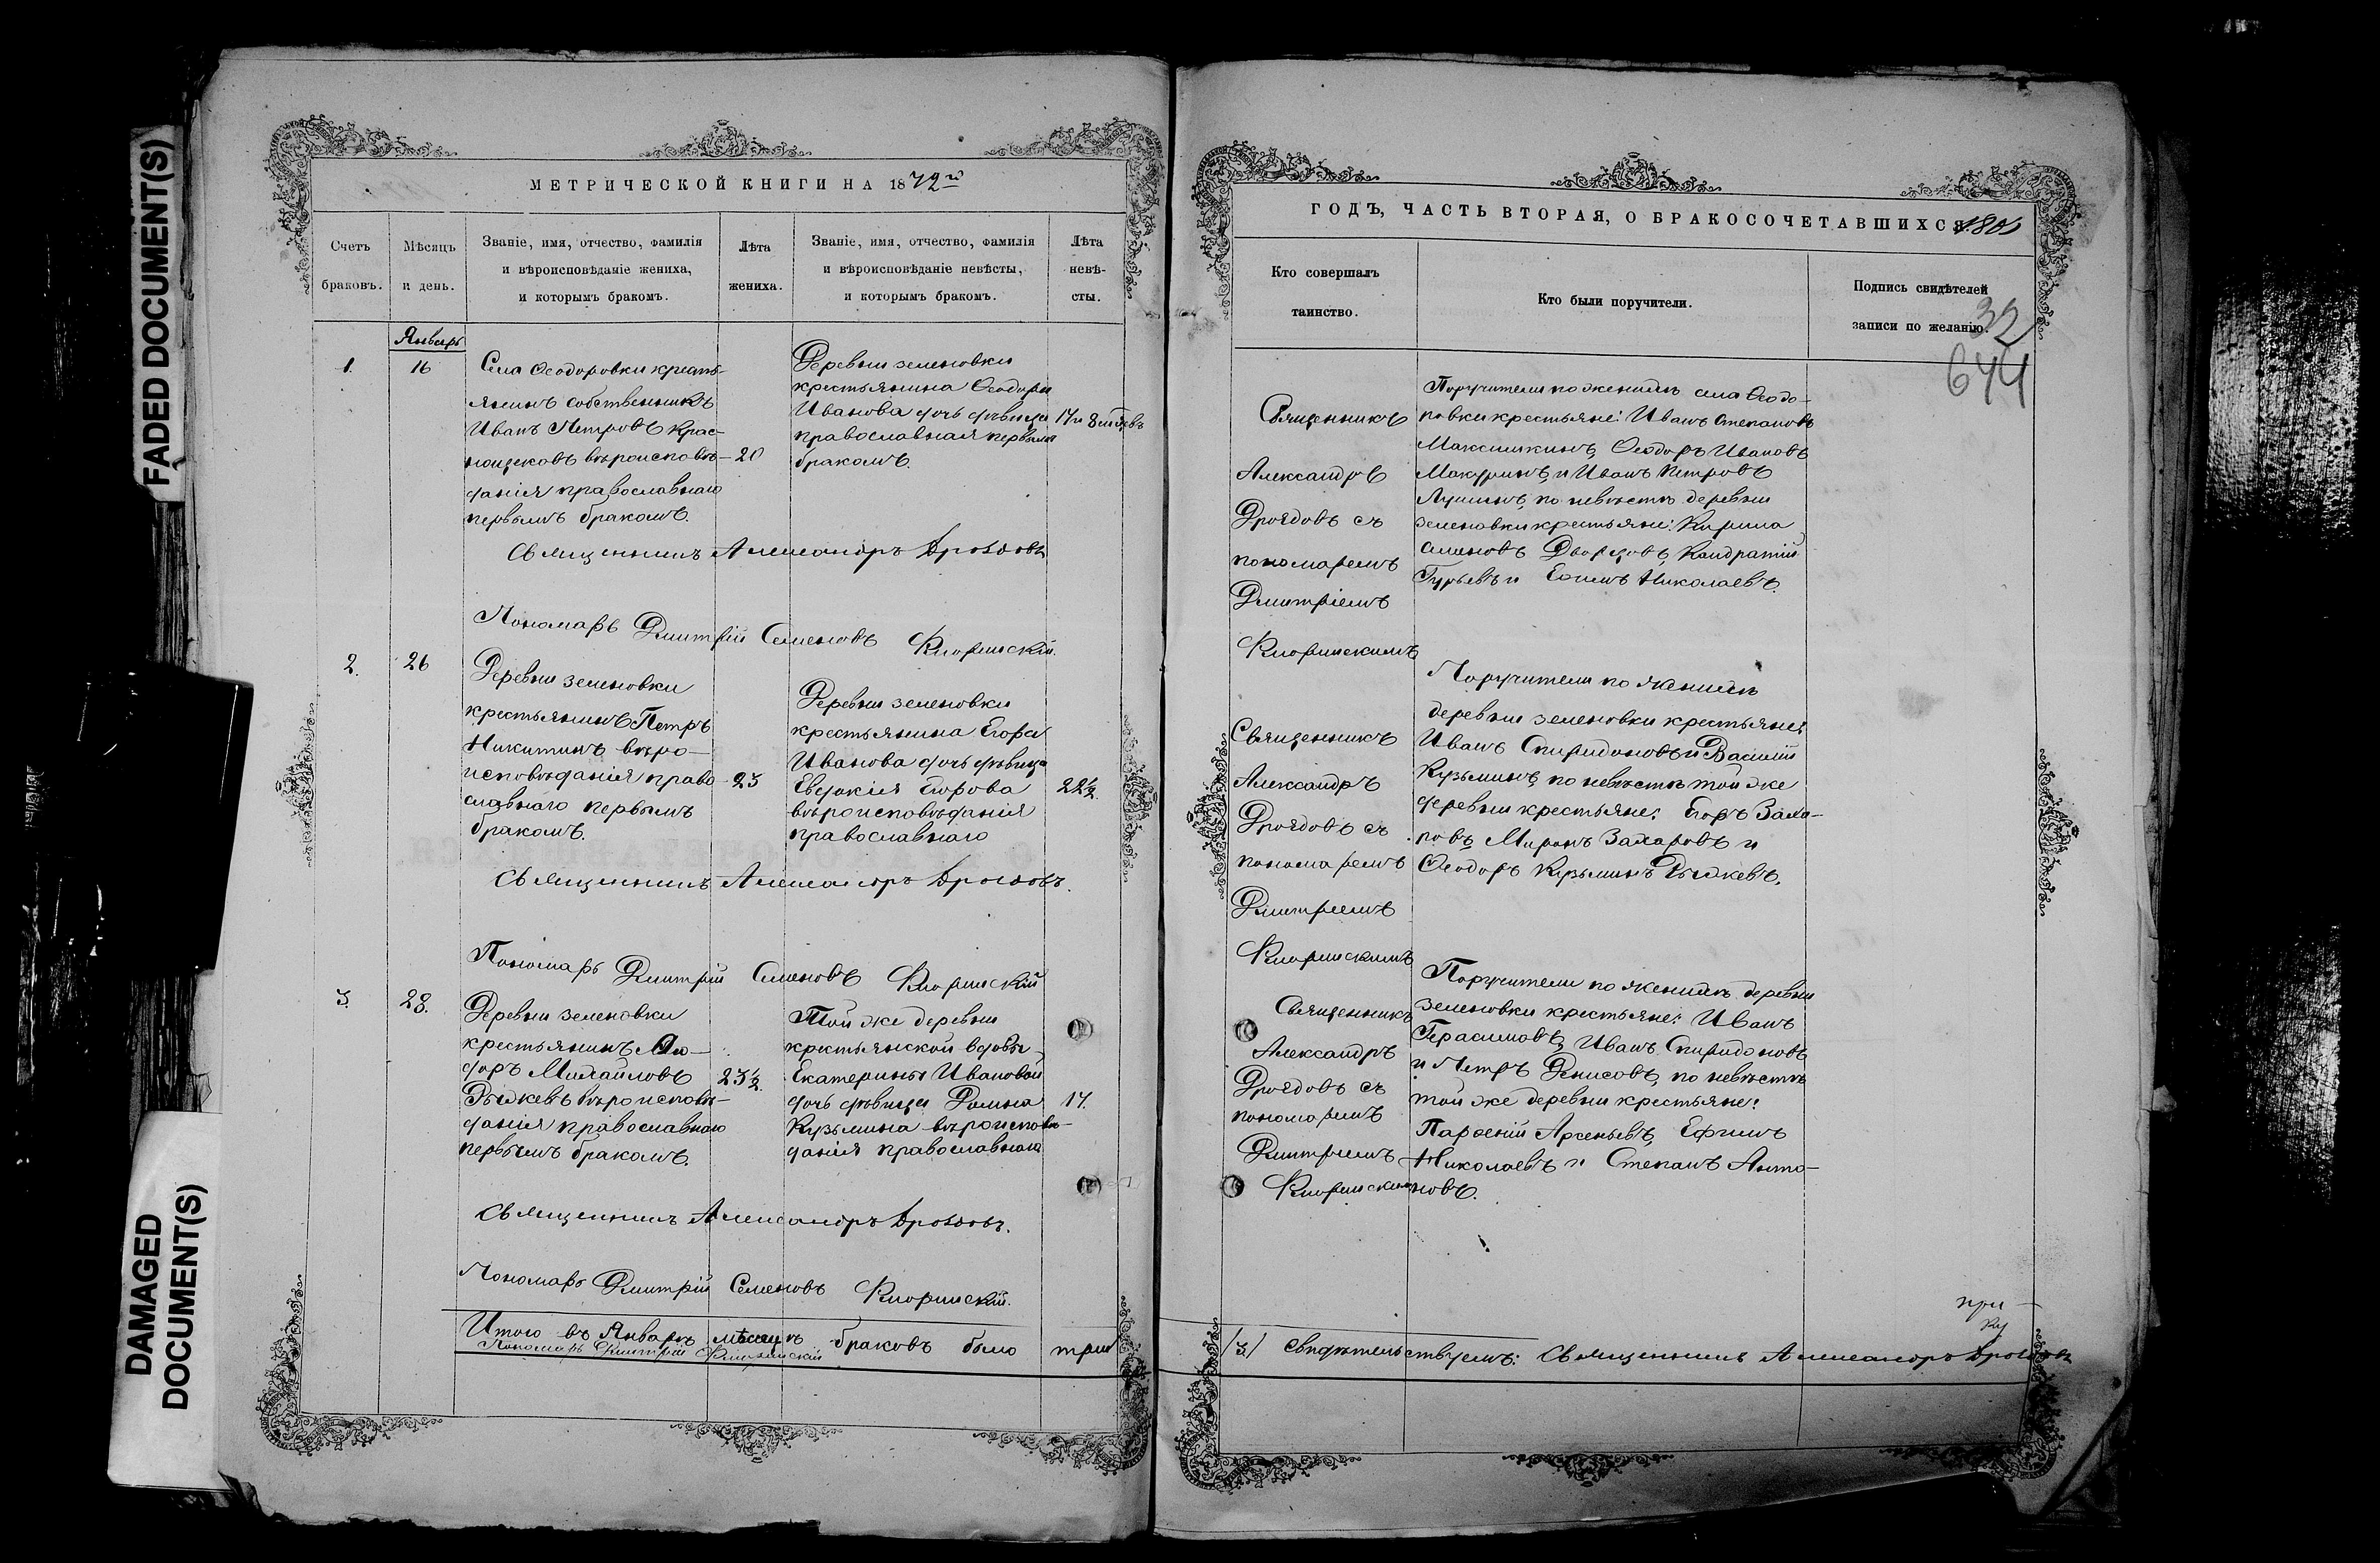 FADED DOCUMENT(S)
DAMAGED
DOCUMENT(S)
МЕТРИЧЕСКОЙ КНИГИ НА 1872й
Счетъ
браковъ.
Мѣсяцъ
и день.
Званіе, имя, отчество, фамилія
и вѣроисповѣданіе жениха,
и которымъ бракомъ.
Лѣта
жениха.
Званіе, имя, отчество, фамилія
и вѣроисповѣданіе невѣсты,
и которымъ бракомъ.
Лѣта
невѣ-
сты.
Январь
1.
16
Села Ѳеодоровки кресть-
янинъ собственникъ
Иванъ Петровъ Крас-
нощековъ вѣроисповѣ-
данія православнаго
первымъ бракомъ.
20
Деревни Зеленовки
крестьянина Ѳеодора
Иванова дочь дѣвица
православная первымъ
бракомъ.
17 и 8
Священникъ Александръ Дроздовъ
Пономарь Дмитрій Семеновъ
2.
26
Деревни Зеленовки
крестьянинъ Петръ
Никитинъ вѣро-
исповѣданія право-
славнаго первымъ
бракомъ.
23
Деревни Зеленовки
крестьянина Егора
Иванова дочь дѣвица
Евдокія Егорова
вѣроисповѣданія
православнаго
22½.
Священникъ Александръ Дроздовъ.
Пономарь Дмитрій Семеновъ
3.
28.
Деревни Зеленовки
крестьянинъ Ѳео-
доръ Михайловъ
Рыжкевъ вѣроисповѣ-
данія православнаго
первымъ бракомъ.
23½.
Той же деревни
крестьянской вдовы
Екатерины Ивановой
дочь дѣвица Домна
Кузьмина вѣроисповѣ-
данія православнаго
17.
Священникъ Александръ Дроздовъ.
Пономарь Дмитрій Семеновъ
Итого въ Январѣ мѣсяцѣ браковъ было три
Пономарь Дмитрій
ГОДЪ, ЧАСТЬ ВТОРАЯ, О БРАКОСОЧЕТАВШИХСЯ.
Кто совершалъ
таинство.
Кто были поручители.
Подпись свидѣтелей
записи по желанію.
32
644
Священникъ
Александръ
Дроздовъ съ
пономаремъ
Дмитріемъ
Поручители по женихѣ села Ѳеодо-
ровки крестьяне: Иванъ Степановъ
Максимкинъ, Ѳеодоръ Ивановъ
Макуринъ, и Иванъ Петровъ
Лушинъ, по невѣстѣ деревни
Зеленовки крестьяне: Кирила
Семеновъ Дворцовъ, Кондратій
Гурьевъ и Ефимъ Николаевъ.
Священникъ
Александръ
Дроздовъ съ
пономаремъ
Дмитріемъ
Поручители по женихѣ
деревни Зеленовки крестьяне:
Иванъ Спиридоновъ и Василій
Кузьминъ, по невѣстѣ той же
деревни крестьяне: Егоръ Заха-
ровъ, Миронъ Захаровъ и
Ѳеодоръ Кузьминъ Рыжкевъ.
Священникъ
Александръ
Дроздовъ съ
пономаремъ
Дмитріемъ
Поручители по женихѣ деревни
Зеленовки крестьяне: Иванъ
Герасимовъ, Иванъ Спиридоновъ
и Петръ Денисовъ, по невѣстѣ
той же деревни крестьяне:
Парѳеній Арсеньевъ, Ефимъ
Николаевъ и Степанъ Анто-
новъ.
/3/ Свидѣтельствуемъ: Священникъ Александръ Дроздовъ